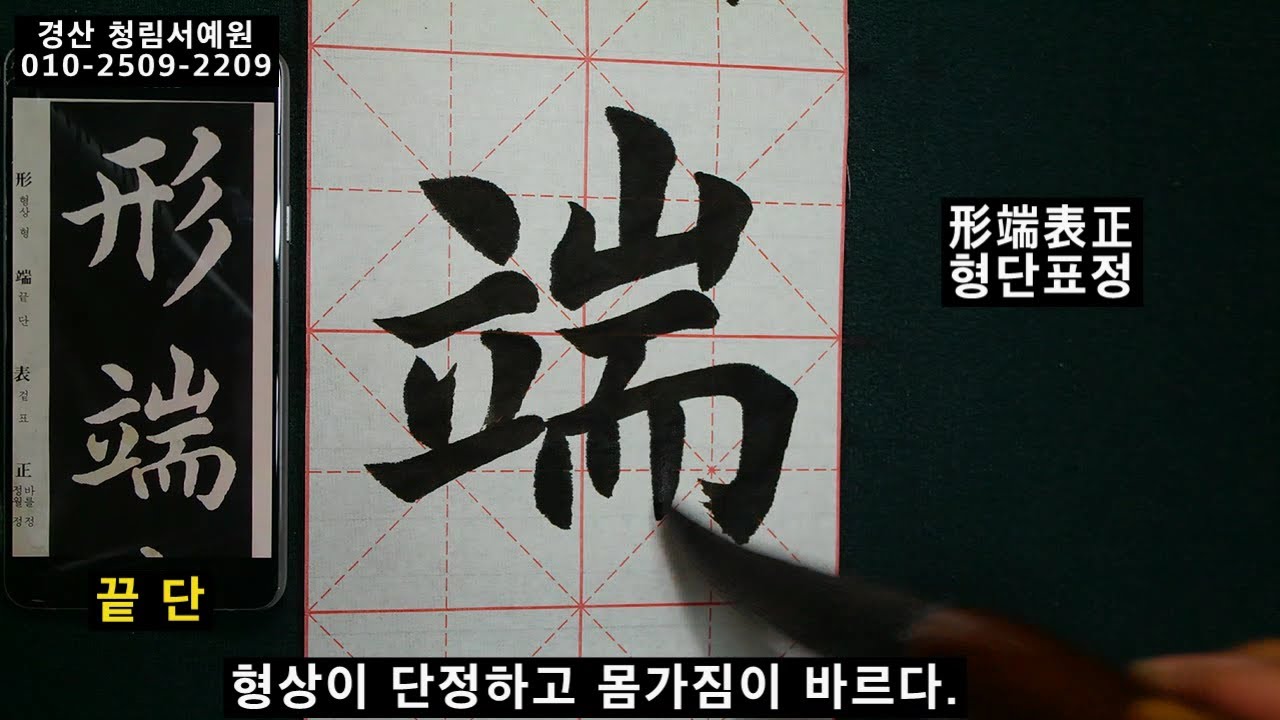 경산 청림서예원
010-2509-2209
形 형상 형
端 끝 단
表 겉 표
正 바를 정
정월 정
形
端
끝 단
端
形端表正
형단표정
형상이 단정하고 몸가짐이 바르다.